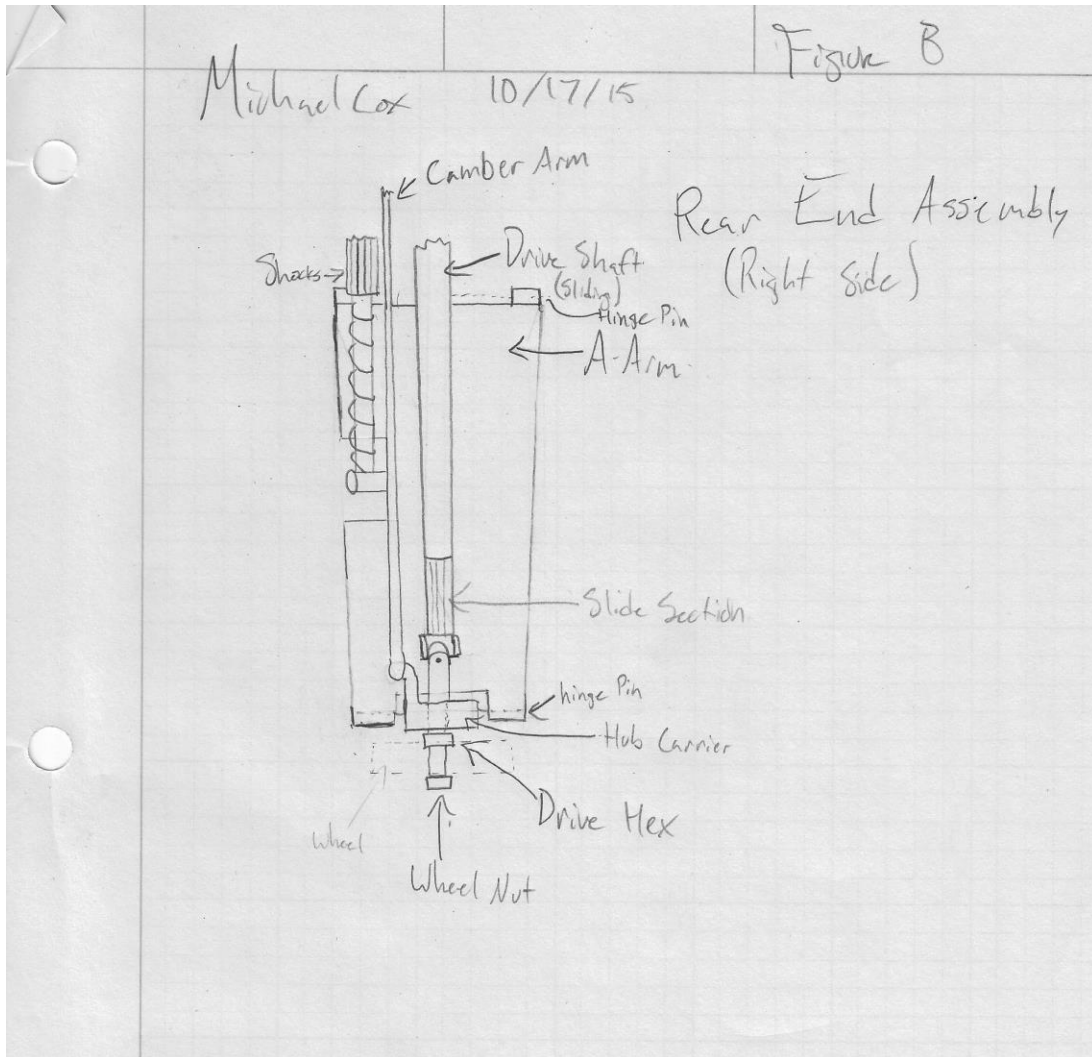 Figure B
Michael Cox 10/17/15
Camber Arm
Rear End Assembly
(Right Side)
Shocks
Drive Shaft
(Sliding)
Hinge Pin
A-Arm
Slide Section
hinge Pin
Hub Carrier
Drive Hex
Wheel
Wheel Nut